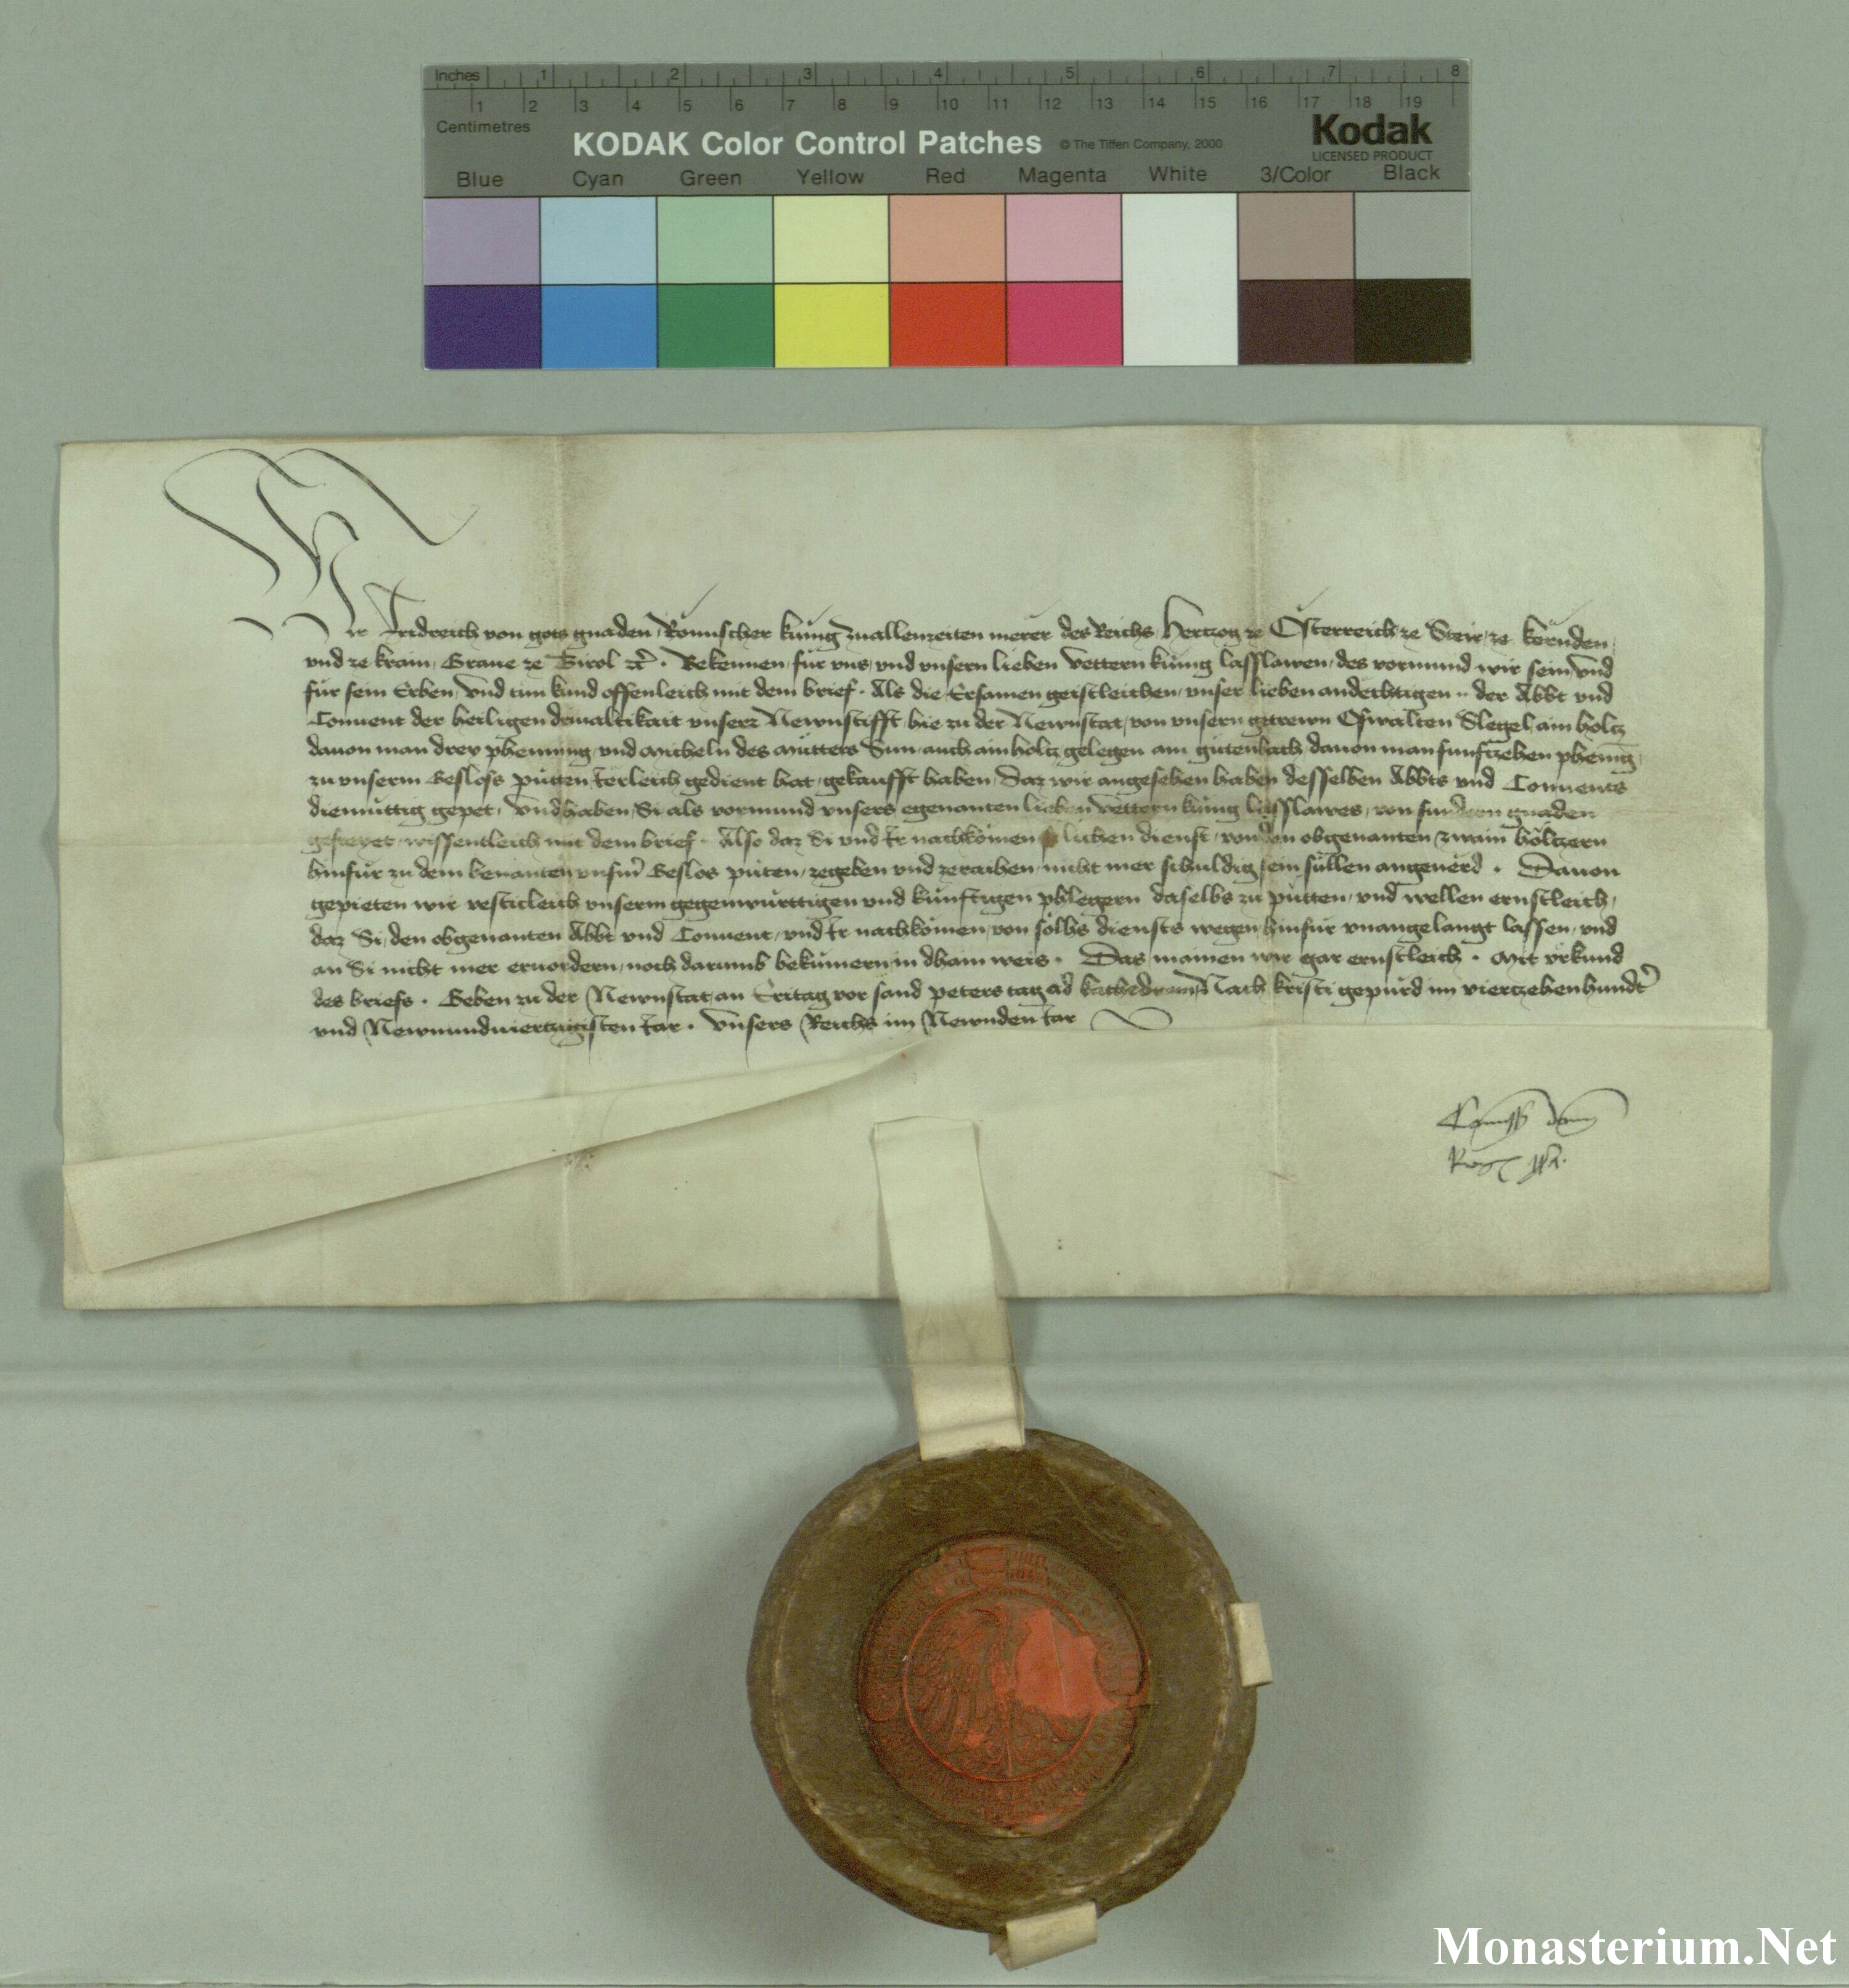 Inches 1 2 3 4 5 6 7 8
1 2 3 4 5 6 7 8 9 10 11 12 13 14 15 16 17 18 19
Centimetres
KODAK Color Control Patches © The Tiffen Company, 2000 Kodak
LICENSED PRODUCT
Blue Cyan Green Yellow Red Magenta White 3/Color Black
Wir Fridreich von gots gnaden Römischer küng zuallenzeiten merer des Reichs Hertzog ze Österreich ze Steir ze kernden
vnd ze krain Graue ze Tirol etc̄. Bekennen für vns vnd vnsern lieben vettern küng lasslawen des vormund wir sein vnd
für sein Erben vnd tun kund offenleich mit dem brief. Als die Ersamen geistleichen vnser lieben andechtigen .. der Abbt vnd
Conuent der heiligen driualtikait vnserr Newnstifft hie zu der Newnstat von vnsern getrewn Oswalten Slegel ain holtz
dauon man drey phenning vnd Micheln des Mütters Sun auch ain holtz gelegen am gütenbach dauon man funftzehen phening
zu vnserm Gesloss pütten Ierleich gedient hat gekaufft haben Daz wir angesehen haben desselben Abbts vnd Conuents
diemüttig gepet vnd haben Si als vormund vnsers egenanten lieben vettern küng lasslawes von sundern gnaden
gefreyet wissentleich mit dem brief. Also daz Si vnd Ir nachkömen lichen dienst von den obgenanten zwain höltzern
hinfür zu dem benanten vnserm̄ Geslos püten zegeben vnd zeraihen nicht mer schuldig sein süllen angeuerd. Dauon
gepieten wir vesticleich vnserm gegenwürttigen vnd künftigen phlegern daselbs zu pütten vnd wellen ernstleich
daz Si den obgenanten Abbt vnd Conuent vnd Ir nachkömen von sölhs diensts wegen hinfür vnangelangt lassen vnd
an Si nicht mer eruordern noch darumb bekümern in dhain weis. Das mainen wir gar ernstleich. Mit vrkund
des briefs. Geben zu der Newnstat an Eritag vor sand peters tag ad kathedram Nach kristi gepürd im viertzehenhundt̄
vnd Newnundviertzigisten Iar. Vnsers Reichs im Newnden Iar
Monasterium.Net